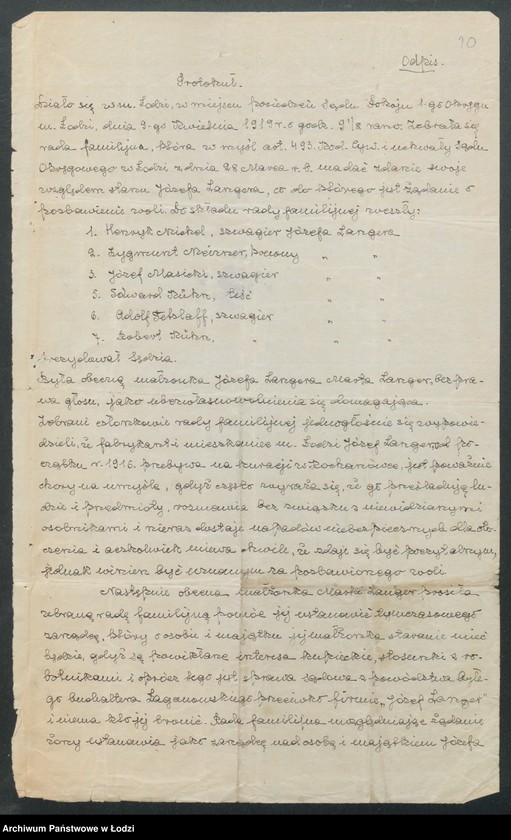 10
Odpis.
Protokuł.
Działo się w m. Łodzi, w miejscu posiedzeń Sądu Pokoju 1-go Okręgu
m. Łodzi, dnia 9-go Kwietnia 1919 r. o godz. 9 1/2 rano. Zebrała się
rada familijna, która w myśl art. 493. Kod. Cyw. i uchwały Sądu
Okręgowego w Łodzi z dnia 28 Marca r. b. ma dać zdanie swoje
względem stanu Józefa Langera, co do którego jest żądanie o
pozbawienie woli. Do składu rady familijnej weszły:
1. Henryk Nickel, szwagier Józefa Langera
2. Zygmunt krewny " "
3. Józef Masicki, szwagier " "
5. Edward Kühn, teść " "
6. Adolf Tetzlaff, szwagier " "
7. Robert Kühn, " " "
Prezydował Sędzia.
Była obecną małżonka Józefa Langera Marta Langer, bez pra-
wa głosu, jako ubezwłasnowolnienia się domagająca.
Zebrani członkowie rady familijnej jednogłośnie się wypowie-
dzieli, że fabrykant i mieszkaniec m. Łodzi Józef Langer od po-
czątku r. 1916. przebywa na kuracji w Kochanówce, jest poważnie
chory na umyśle, gdyż często wyraża się, że go prześladują lu-
dzie i przedmioty, rozmawia bez związku z niewidzianymi
osobnikami i nieraz dostaje napadów niebezpiecznych dla oto-
czenia i aczkolwiek miewa chwile, że zdaje się być poczytalnym,
jednak winien być uznanym za pozbawionego woli.
Następnie obecna małżonka Marta Langer prosiła
zebraną radę familijną pomóc jej ustanowić tymczasowego
zarządcę, który o osobie i majątku jej małżonka staranie mieć
będzie, gdyż są powikłane interesa kupieckie, stosunki z ro-
botnikami i oprócz tego jest sprawa sądowa z powództwa byłe-
go buchaltera Łaganowskiego przeciwko firmie „Józef Langer"
i niema kto jej bronić. Rada familijna uwzględniając żądanie
żony ustanawia jako zarządcę nad osobą i majątkiem Józefa
Archiwum Państwowe w Łodzi